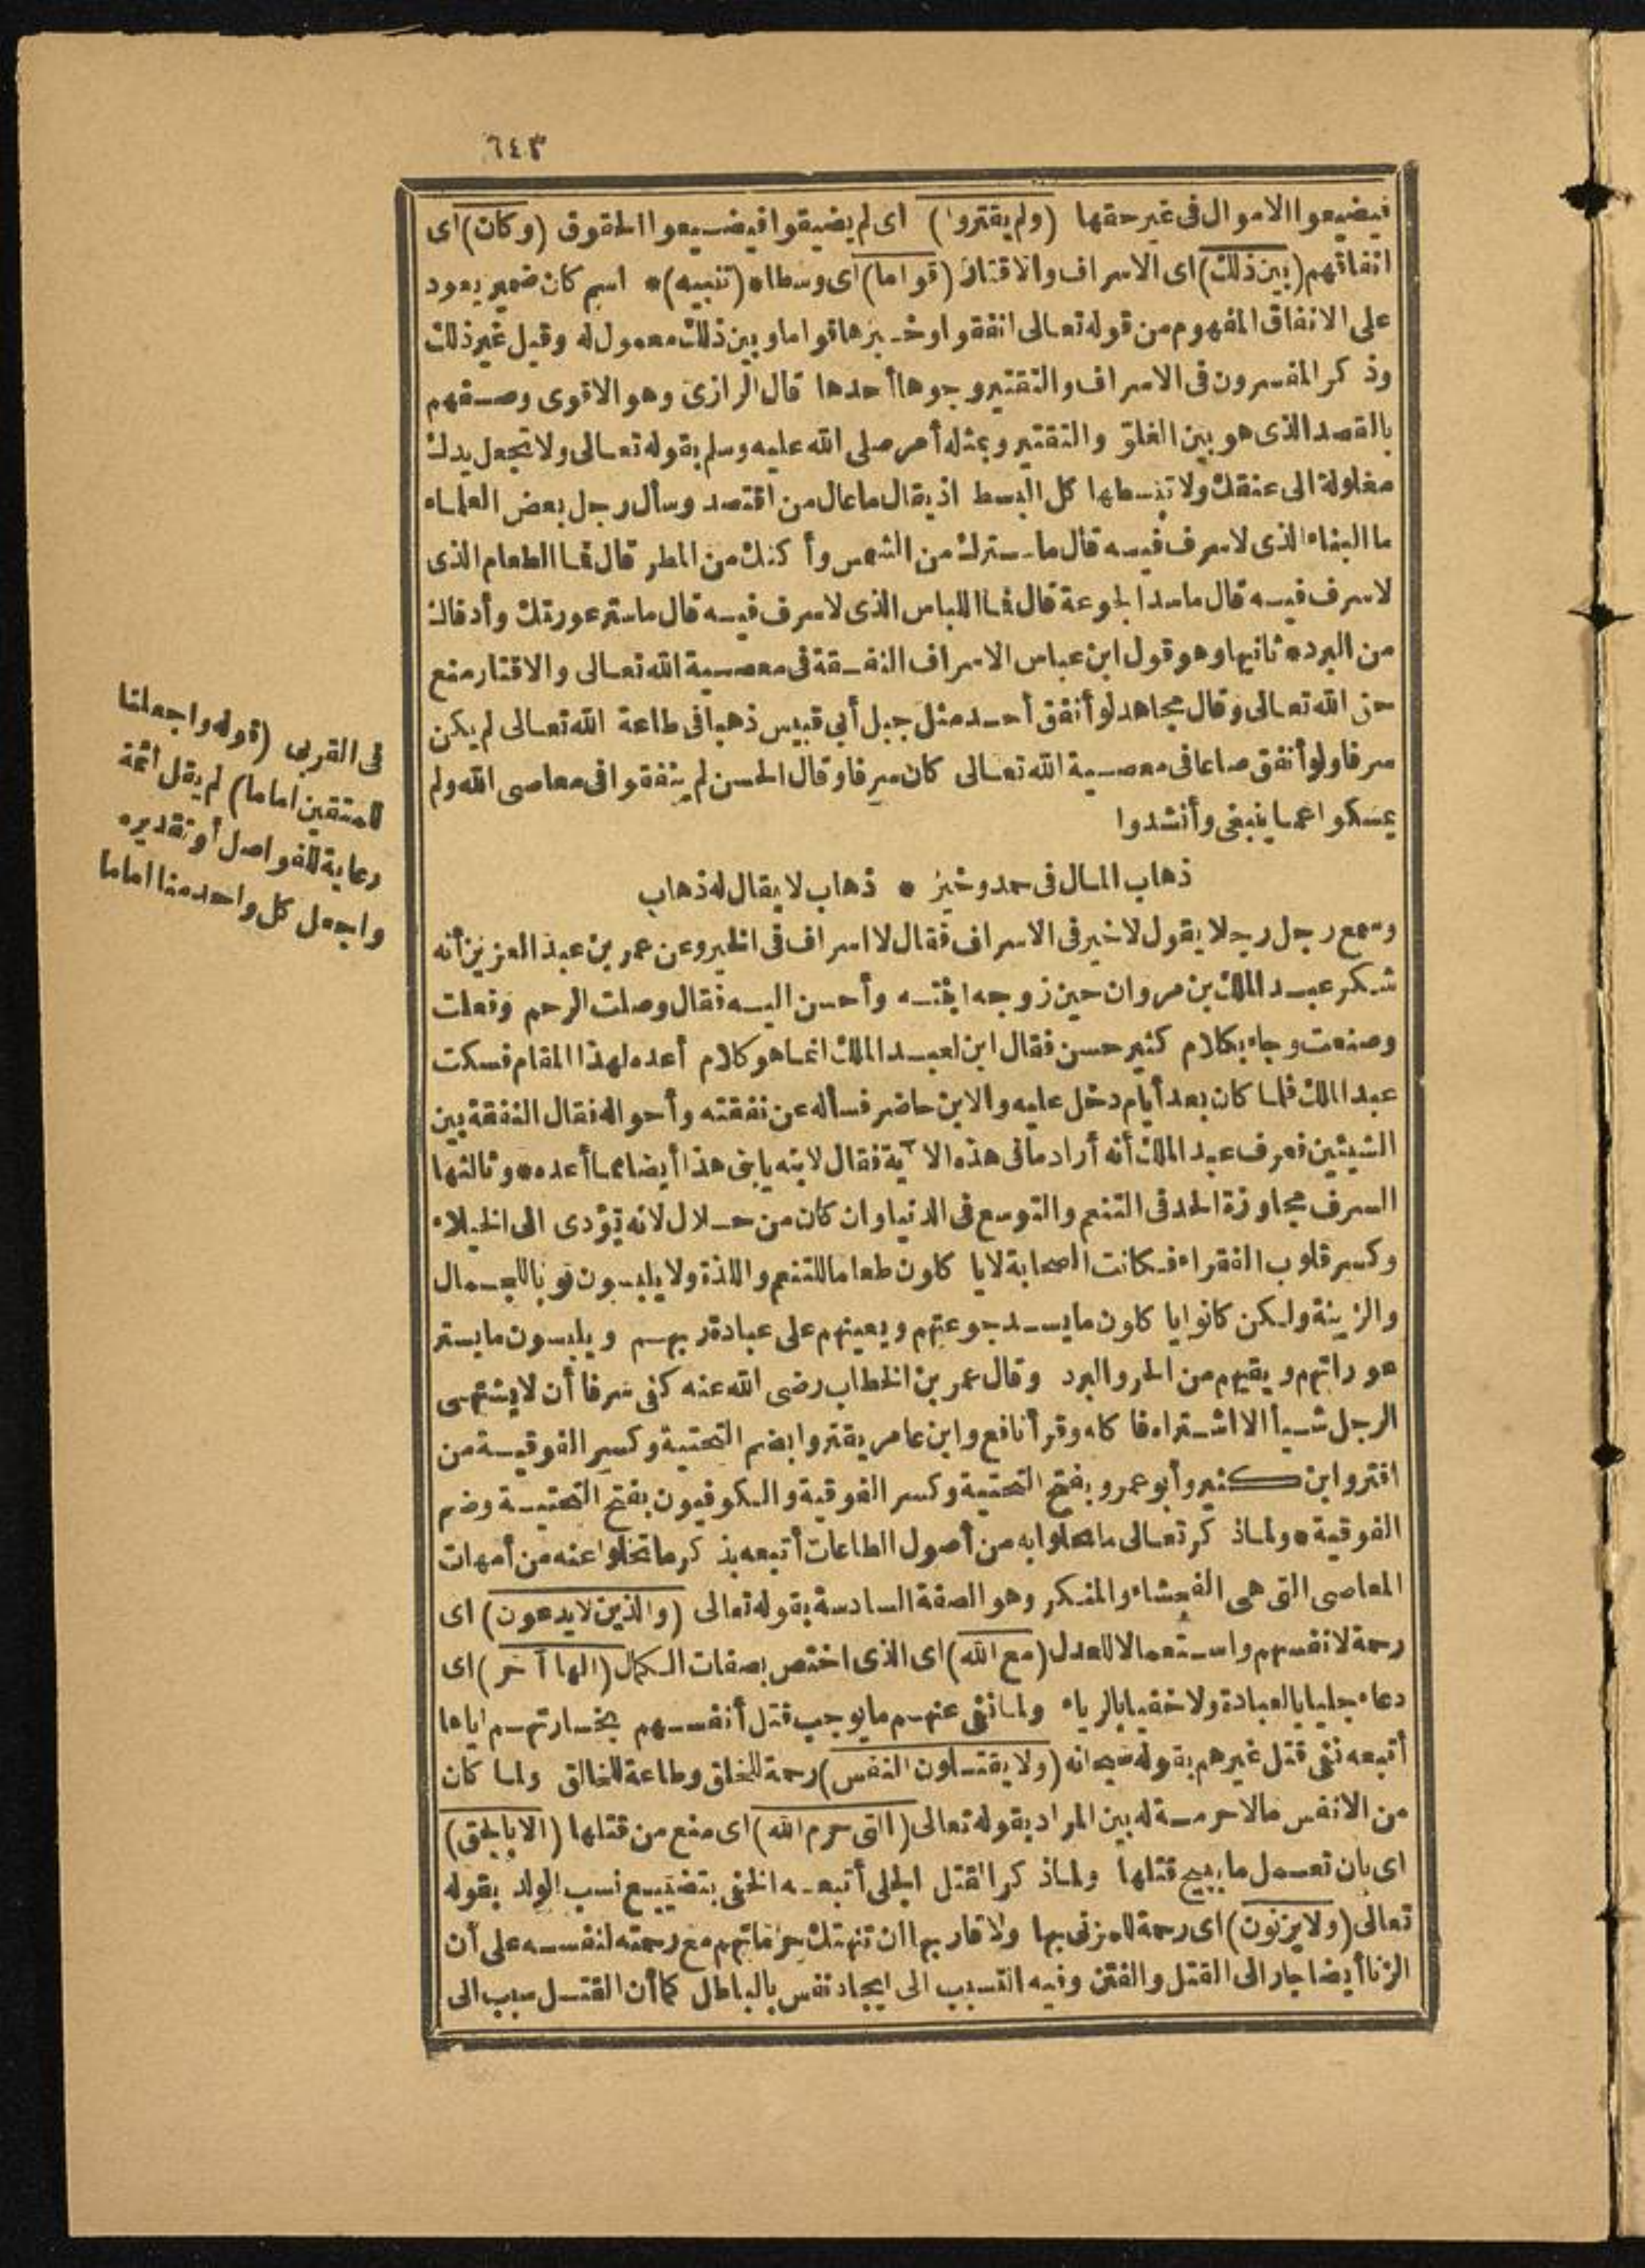 ٦٤٣
فيضيعوا الاموال فى غير حقها (ولم يقتروا) اى لم يضيقوا فيضيعوا الحقوق (وكان) اى
انفاقهم (بين ذلك) اى الاسراف والاقتار (قواما) اى وسطا * (تنبيه) * اسم كان ضمير يعود
على الانفاق المفهوم من قوله تعالى انفقوا وخبرها قواما وبين ذلك معمول له وقيل غير ذلك
وذكر المفسرون فى الاسراف والتقتير وجوها أحدها قال الرازى وهو الاقوى وصفهم
بالقصد الذى هو بين الغلو والتقتير وبمثله أمر صلى الله عليه وسلم بقوله تعالى ولا تجعل يدك
مغلولة الى عنقك ولا تبسطها كل البسط اذ يقال ما عال من اقتصد وسأل رجل بعض العلماء
ما البناء الذى لا سرف فيه قال ما سترك من الشمس وأكنك من المطر قال فما الطعام الذى
لا سرف فيه قال ما سد الجوعة قال فما اللباس الذى لا سرف فيه قال ما ستر عورتك وأدفاك
من البرد * ثانيها وهو قول ابن عباس الاسراف النفقة فى معصية الله تعالى والاقتار منع
حق الله تعالى وقال مجاهد لو أنفق أحد مثل جبل أبى قبيس ذهبا فى طاعة الله تعالى لم يكن
سرفا ولو أنفق صاعا فى معصية الله تعالى كان سرفا وقال الحسن لم ينفقوا فى معاصى الله ولم
يمسكوا عما ينبغى وأنشدوا
ذهاب المال فى حمد وخير * ذهاب لا يقال له ذهاب
وسمع رجل رجلا يقول لا خير فى الاسراف فقال لا اسراف فى الخير وعن عمر بن عبد العزيز أنه
شكر عبد الملك بن مروان حين زوجه ابنته وأحسن اليه فقال وصلت الرحم وفعلت
وصنعت وجاء بكلام كثير حسن فقال ابن لعبد الملك انما هو كلام أعده لهذا المقام فسكت
عبد الملك فلما كان بعد أيام دخل عليه والابن حاضر فسأله عن نفقته وأحواله فقال النفقة بين
الشيئين فعرف عبد الملك أنه أراد ما فى هذه الآية فقال لابنه يا بنى هذا أيضا مما أعده * وثالثها
السرف مجاوزة الحد فى التنعم والتوسع فى الدنيا وان كان من حلال لانه يؤدى الى الخيلاء
وكسر قلوب الفقراء فكانت الصحابة لا يأكلون طعاما للتنعم واللذة ولا يلبسون ثوبا للجمال
والزينة ولكن كانوا يأكلون ما يسد جوعتهم ويعينهم على عبادة ربهم ويلبسون ما يستر
عوراتهم ويقيهم من الحر والبرد وقال عمر بن الخطاب رضى الله عنه كفى سرفا أن لا يشتهى
الرجل شيأ الا اشتراه فاكله وقرأ نافع وابن عامر يقتروا بضم التحتية وكسر الفوقية من
اقتر وابن كثير وأبو عمرو بفتح التحتية وكسر الفوقية والكوفيون بفتح التحتية وضم
الفوقية * ولما ذكر تعالى ما تحلوا به من أصول الطاعات أتبعه بذكر ما تخلوا عنه من أمهات
المعاصى التى هى الفحشاء والمنكر وهو الصفة السادسة بقوله تعالى (والذين لا يدعون) اى
رحمة لانفسهم واستعمالا للعدل (مع الله) اى الذى اختص بصفات الكمال (الها آخر) اى
دعاء جليا بالعبادة ولا خفيا بالرياء ولما نفى عنهم ما يوجب قتل أنفسهم بخسارتهم اياها
أتبعه نفى قتل غيرهم بقوله سبحانه (ولا يقتلون النفس) رحمة للخلق وطاعة للخالق ولما كان
من الانفس ما لا حرمة له بين المراد بقوله تعالى (التى حرم الله) اى منع من قتلها (الا بالحق)
اى بان تعمل ما يبيح قتلها ولما ذكر القتل الجلى أتبعه الخفى بتضييع نسب الولد بقوله
تعالى (ولا يزنون) اى رحمة للمزنى بها ولاقاربها ان تنهتك حرماتهم مع رحمته لنفسه على أن
الزنا أيضا جار الى القتل والفتن وفيه التسبب الى ايجاد نفس بالباطل كما أن القتل سبب الى
فى القربى (قوله واجعلنا
للمتقين اماما) لم يقل أئمة
رعاية للفواصل أو تقديره
واجعل كل واحد منا اماما